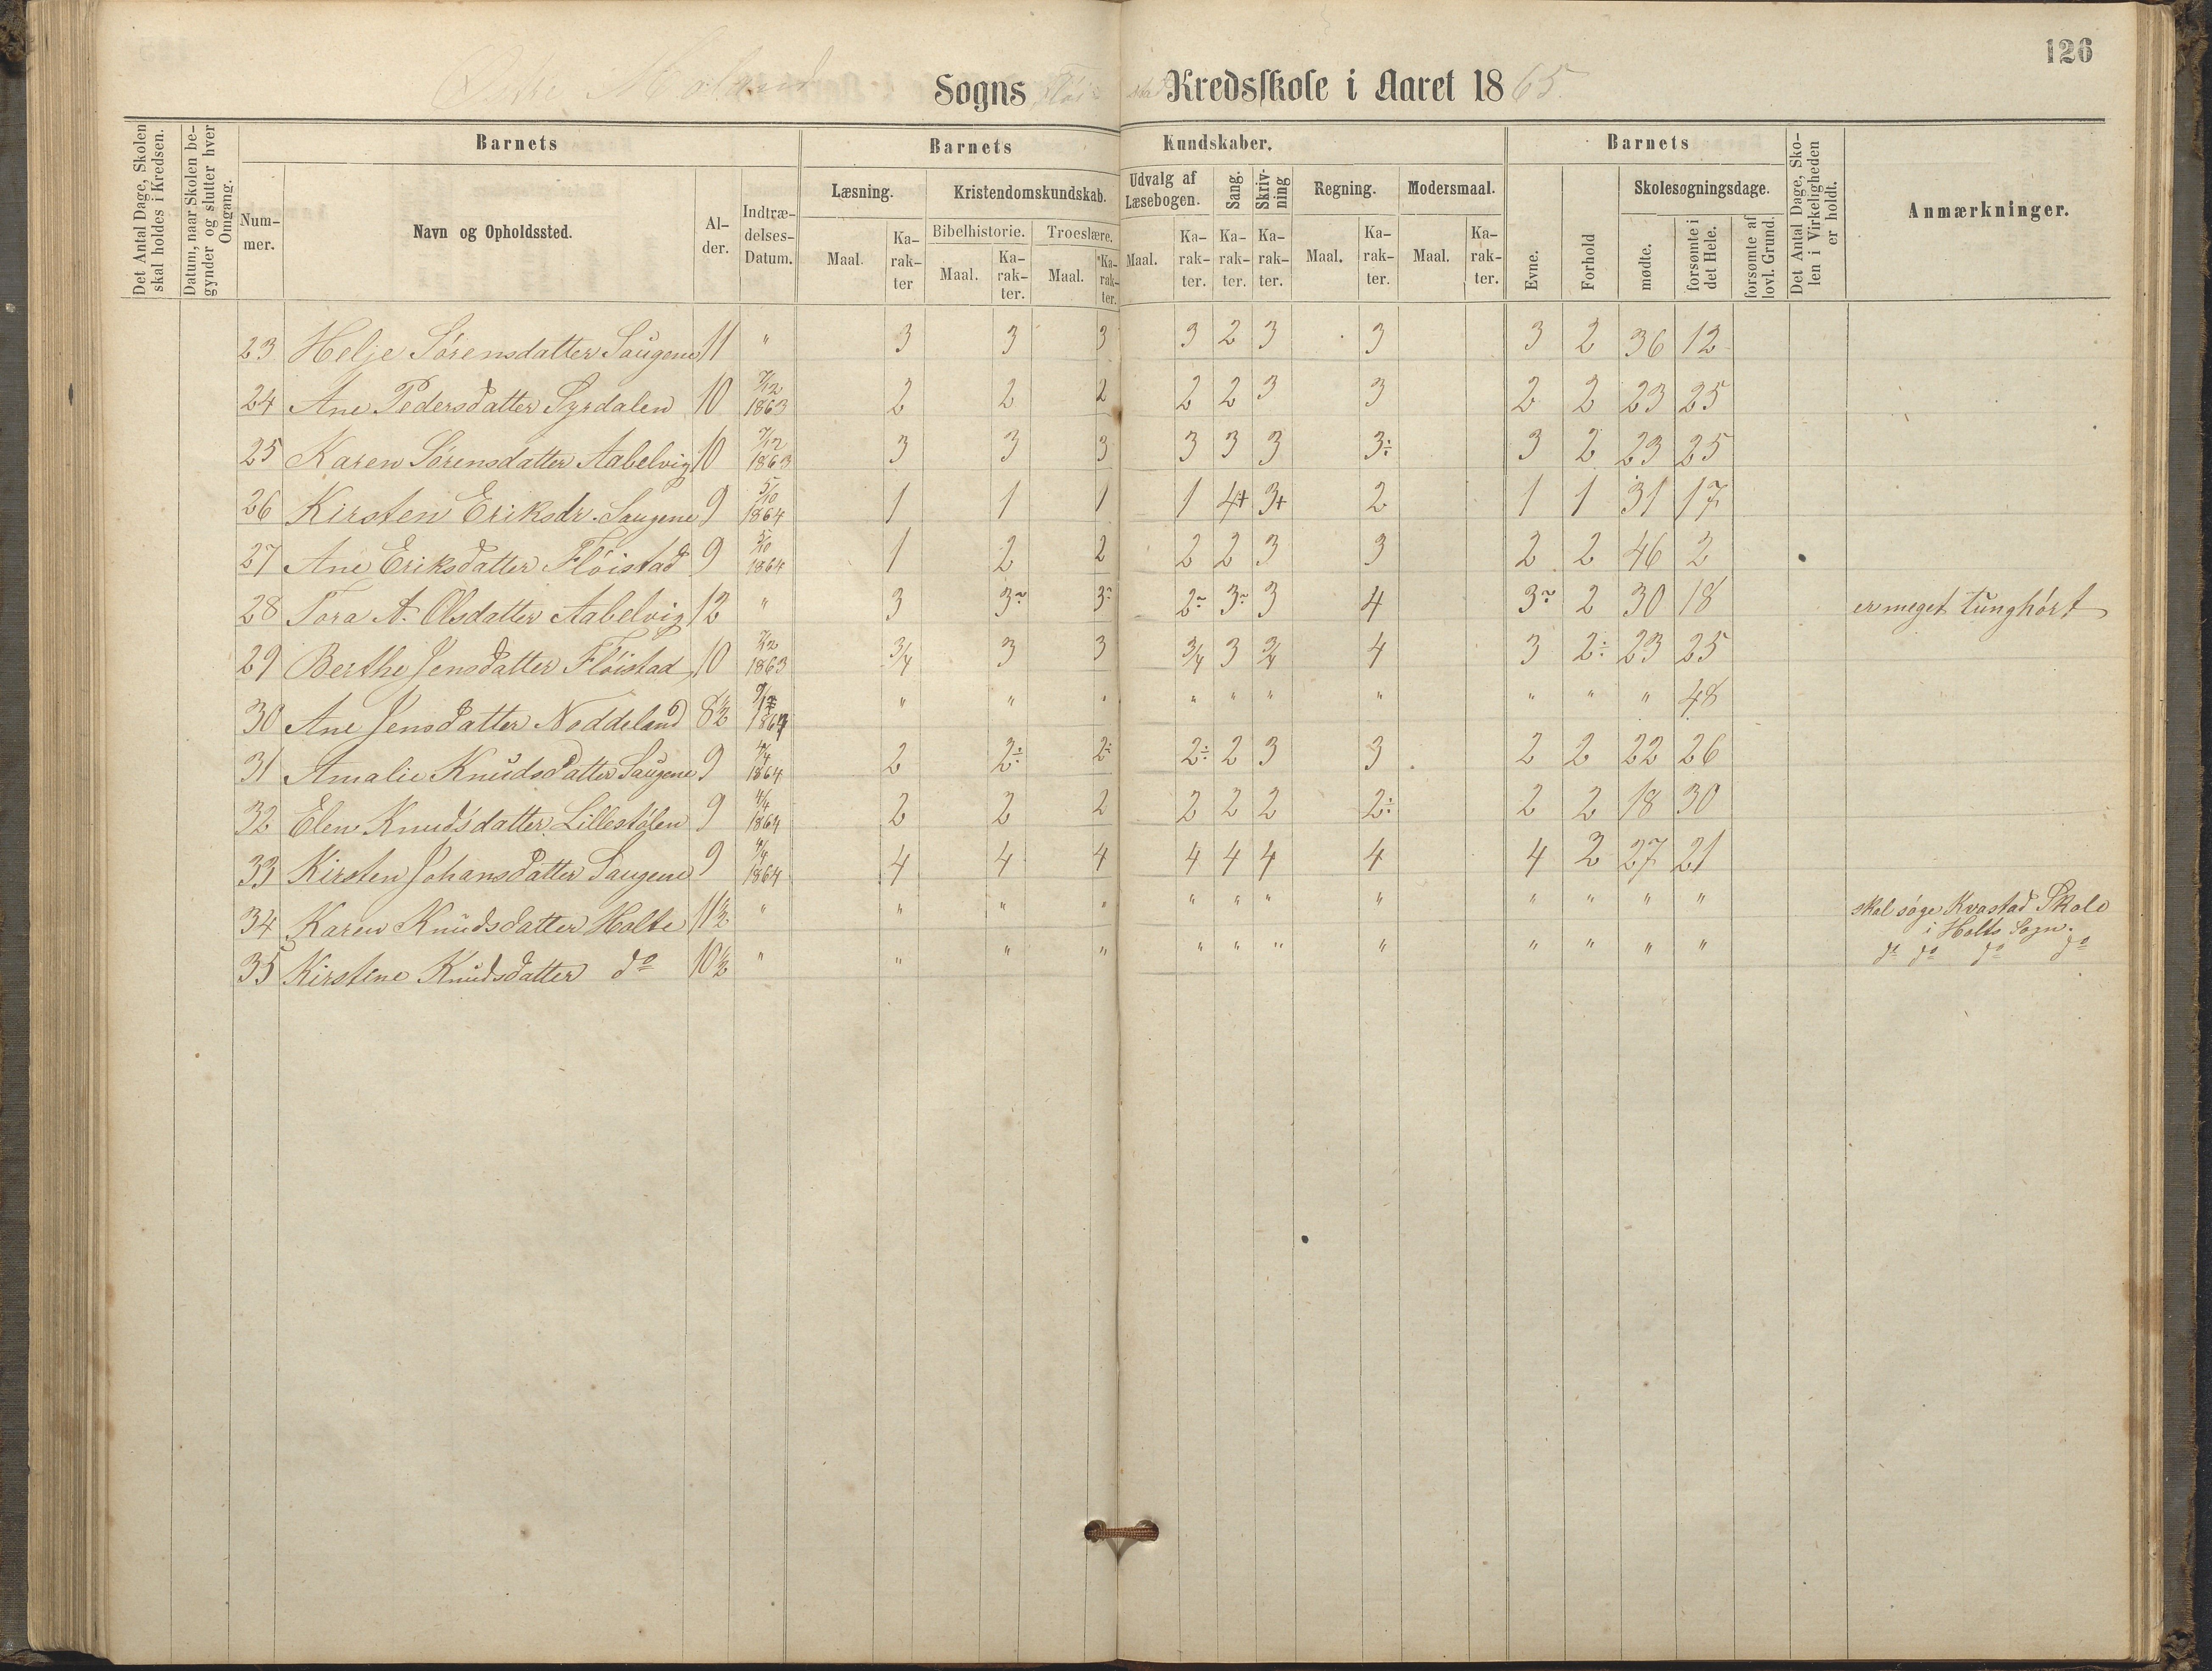 126
Østre Moland Sogns Fløistad Kredsskole i Aaret 1865.
Det Antal Dage, Skolen skal holdes i Kredsen.
Datum, naar Skolen begynder og slutter hver Omgang.
Barnets
Barnets Kundskaber.
Barnets
Det Antal Dage, Skolen i Virkeligheden er holdt.
Anmærkninger.
Nummer.
Navn og Opholdssted.
Alder.
Indtrædelses-Datum.
Læsning.
Kristendomskundskab.
Udvalg af Læsebogen.
Sang.
Skrivning
Regning.
Modersmaal.
Evne.
Forhold
Skolesøgningsdage.
Bibelhistorie.
Troeslære.
Maal. Karakter
Maal. Karakter.
Maal. Karakter.
Maal. Karakter.
Karakter.
Karakter.
Maal. Karakter.
Maal. Karakter.
mødte.
forsømte i det Hele.
forsømte af lovl. Grund.
23 Helje Sørensdatter Saugene 11 " 3 3 3 3 2 3 3 3 2 36 12
24 Ane Pedersdatter Syrdalen 10 7/12 1863 2 2 2 2 2 3 3 2 2 23 25
25 Karen Sørensdatter Aabelvig 10 7/12 1863 3 3 3 3 3 3 3÷ 3 2 23 25
26 Kirsten Eriksdr. Saugene 9 5/10 1864 1 1 1 1 4+ 3+ 2 1 1 31 17
27 Ane Eriksdatter Fløistad 9 5/10 1864 1 2 2 2 2 3 3 2 2 46 2
28 Tora A. Olsdatter Aabelvig 12 " 3 3~ 3~ 2~ 3~ 3 4 3~ 2 30 18 er meget tunghørt
29 Berthe Jensdatter Fløistad 10 7/12 1863 3/4 3 3 3/4 3 3/4 4 3 2÷ 23 25
30 Ane Jensdatter Noddeland 8½ " " " " " " " " " " 48
31 Amalie Knudsdatter Saugene 9 4/4 1864 2 2÷ 2÷ 2÷ 2 3 3 2 2 22 26
32 Elen Knudsdatter Lillestølen 9 4/4 1864 2 2 2 2 2 2 2÷ 2 2 18 30
33 Kirsten Johansdatter Saugene 9 4/4 1864 4 4 4 4 4 4 4 4 2 27 21
34 Karen Knudsdatter Holte 11½ " " " " " " " " " " " " skal søge Kvastad Skole
i Holts Sogn.
35 Kirstine Knudsdatter do 10½ " " " " " " " " " " " " do do do do